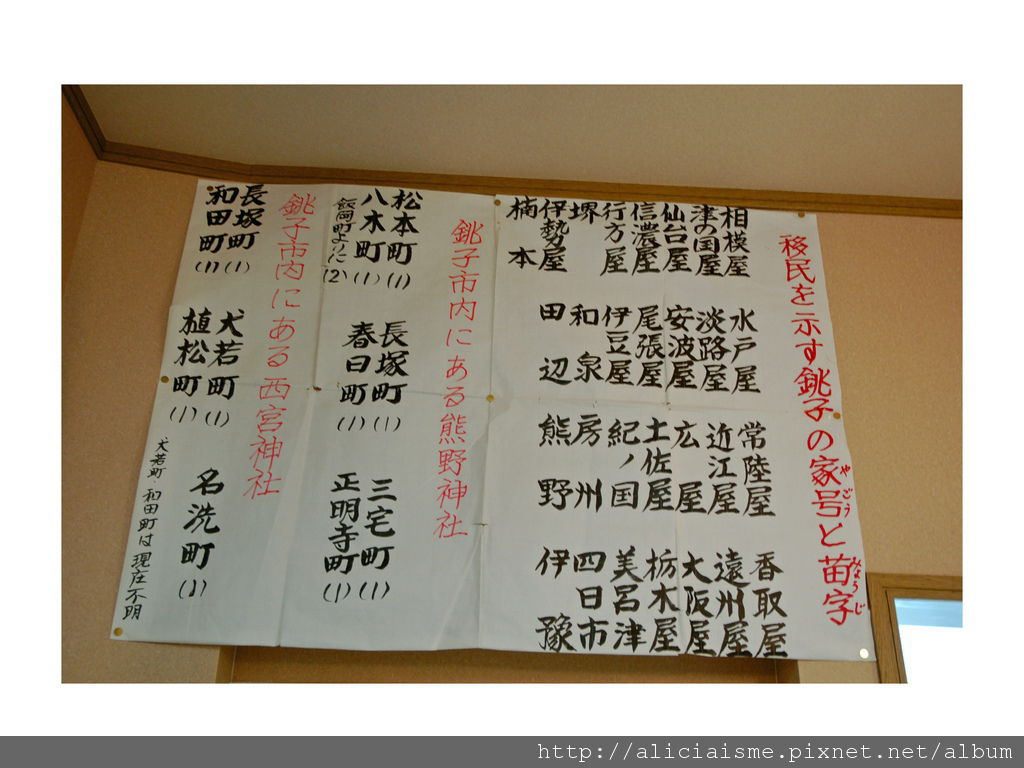 移民を示す銚子の家号と苗字
やごう みょうじ
相模屋 水戸屋 常陸屋 香取屋
津の国屋 淡路屋 近江屋 遠州屋
仙台屋 安波屋 広屋 大阪屋
信濃屋 尾張屋 土佐屋 栃木屋
行方屋 伊豆屋 紀ノ国 美呂津
堺 和泉 房州 四日市
伊勢屋 田辺 熊野 伊豫
楠本
銚子市内にある熊野神社
松本町(1) 長塚町(1) 三宅町(1)
八木町(1) 春日町(1) 正明寺町(1)
飯岡町よりに(2)
銚子市内にある西宮神社
長塚町(1) 犬若町(1) 名洗町(1)
和田町(1) 植松町(1)
犬若町・和田町は現在不明
http://aliciaisme.pixnet.net/album